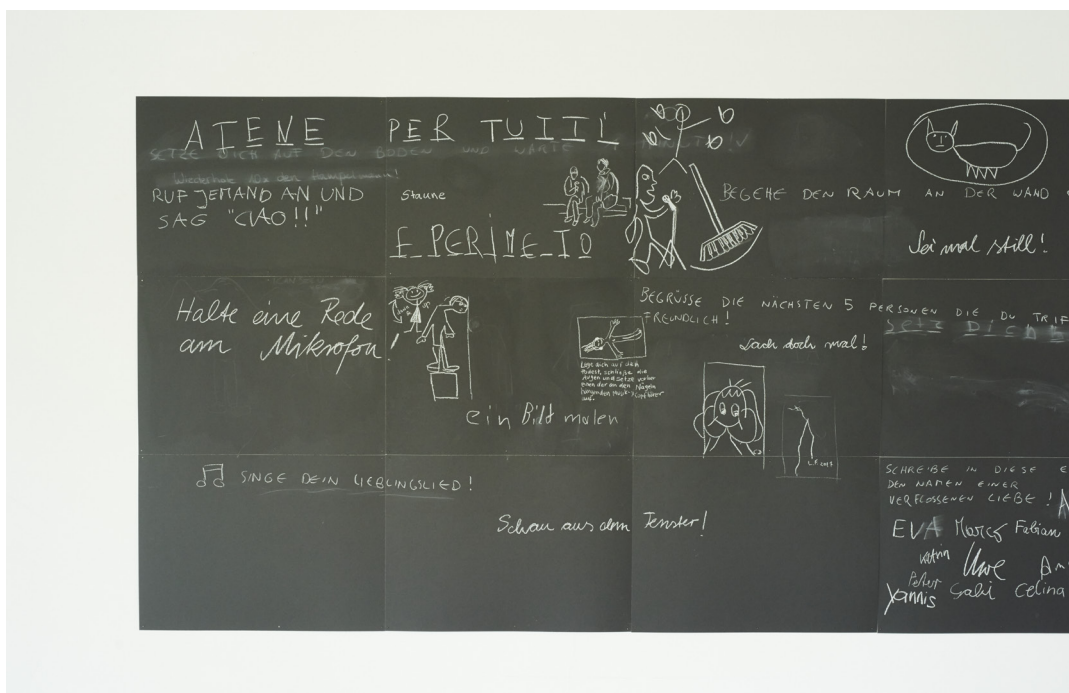 ATENE PER TUTTI
SETZE DICH AUF DEN BODEN UND WARTE
RUF JEMAND AN UND
SAG "CIAO!!"
Staune
E PERIME TO
BEGEHE DEN RAUM AN DER WAND
Sei mal still!
Halte eine Rede
am Mikrofon!
Lege dich auf das
Podest, schließe die
Augen und setze vorher
einen der an den Nägeln
hängenden Musik-Kopfhörer
auf.
ein Bild malen
BEGRÜSSE DIE NÄCHSTEN 5 PERSONEN DIE DU TRIF
FREUNDLICH!
SETZ DICH
Lach doch mal!
SINGE DEIN LIEBLINGSLIED!
Schau aus dem Fenster!
SCHREIBE IN DIESE E
DEN NAMEN EINER
VERFLOSSENEN LIEBE!
EVA Marco Fabian
Katrin Uwe
Peter
Yannis Gabi Celina